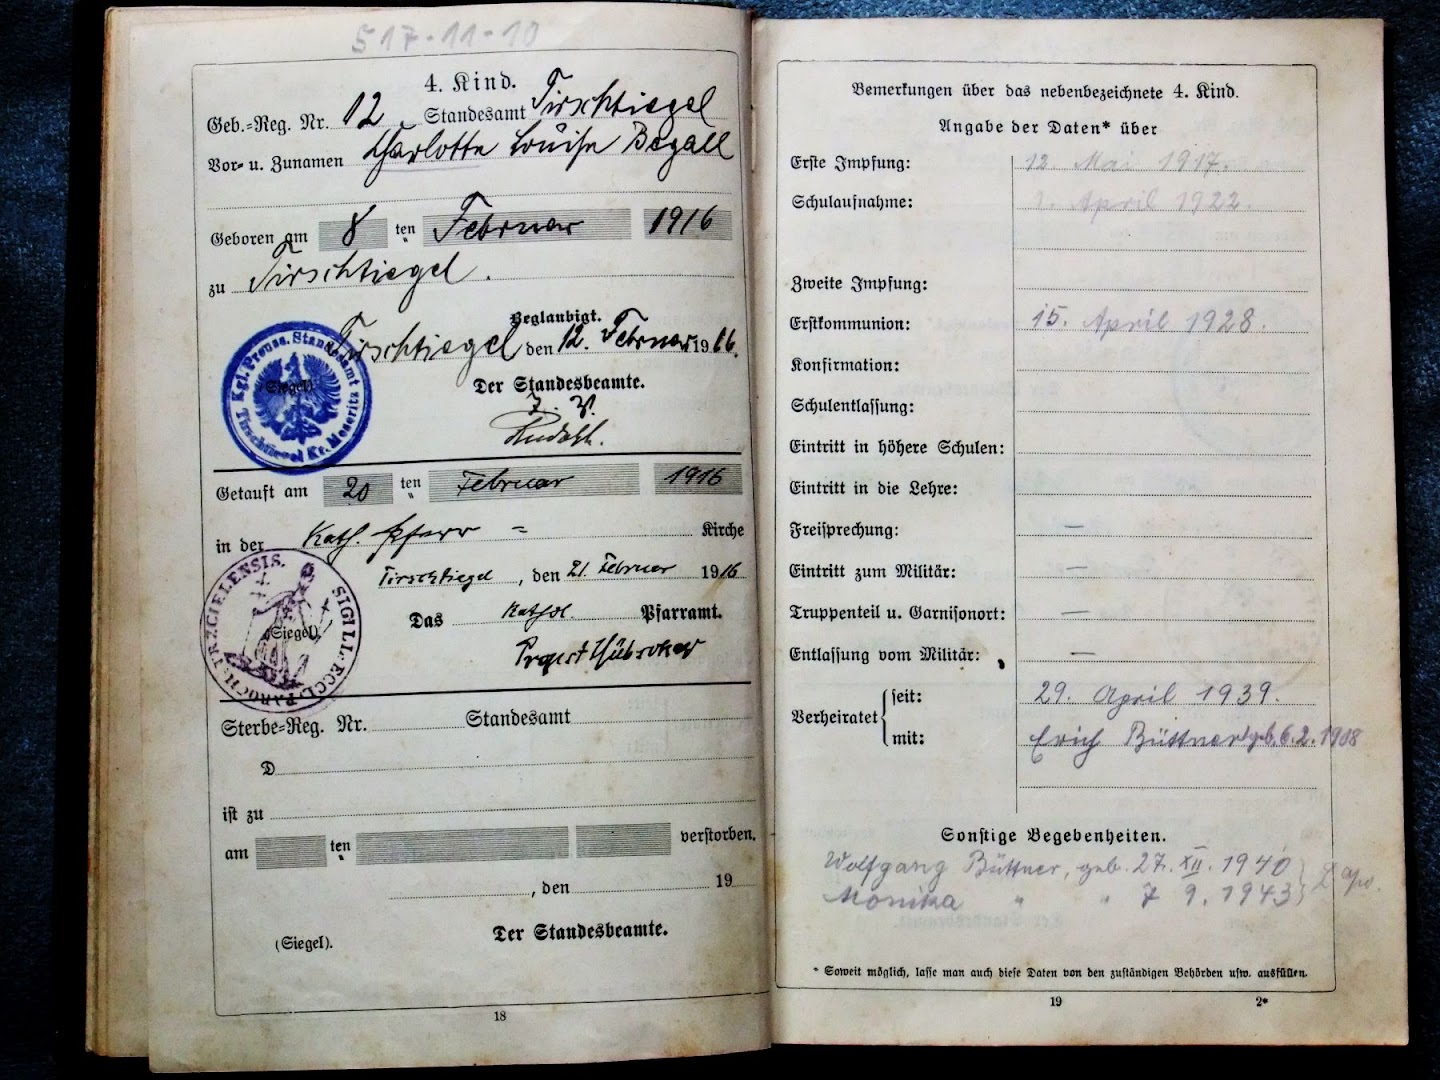 517-11-10
4. Kind.
Geb.-Reg. Nr. 12. Standesamt Tirschtiegel
Vor- u. Zunamen Charlotte Louise Begall
Geboren am 8 ten Februar 1916
zu Tirschtiegel.
Beglaubigt.
Tirschtiegel den 12. Februar 1916.
Der Standesbeamte.
(Siegel)
Kgl. Preuss. Standesamt
Tirschtiegel Kr. Meseritz
J. V.
Getauft am 20 ten Februar 1916
in der Kath. Pfarr = Kirche
Tirschtiegel, den 21. Februar 1916
Das kathol. Pfarramt.
(Siegel)
SIGILL. ECCL. PAROCH. TRZCIELENSIS.
Propst
Sterbe-Reg. Nr. Standesamt
D
ist zu
am ten verstorben.
, den 19
(Siegel). Der Standesbeamte.
18
Bemerkungen über das nebenbezeichnete 4. Kind.
Angabe der Daten* über
Erste Impfung: 12. Mai 1917.
Schulaufnahme: 1. April 1922.
Zweite Impfung:
Erstkommunion: 15. April 1928.
Konfirmation:
Schulentlassung:
Eintritt in höhere Schulen:
Eintritt in die Lehre:
Freisprechung: —
Eintritt zum Militär: —
Truppenteil u. Garnisonort: —
Entlassung vom Militär: —
Verheiratet
seit: 29. April 1939.
mit: Erich Büttner geb. 6.2.1908
Sonstige Begebenheiten.
Wolfgang Büttner, geb. 27. XII. 1940
Monika " " 7 9. 1943
* Soweit möglich, lasse man auch diese Daten von den zuständigen Behörden usw. ausfüllen.
19 2*